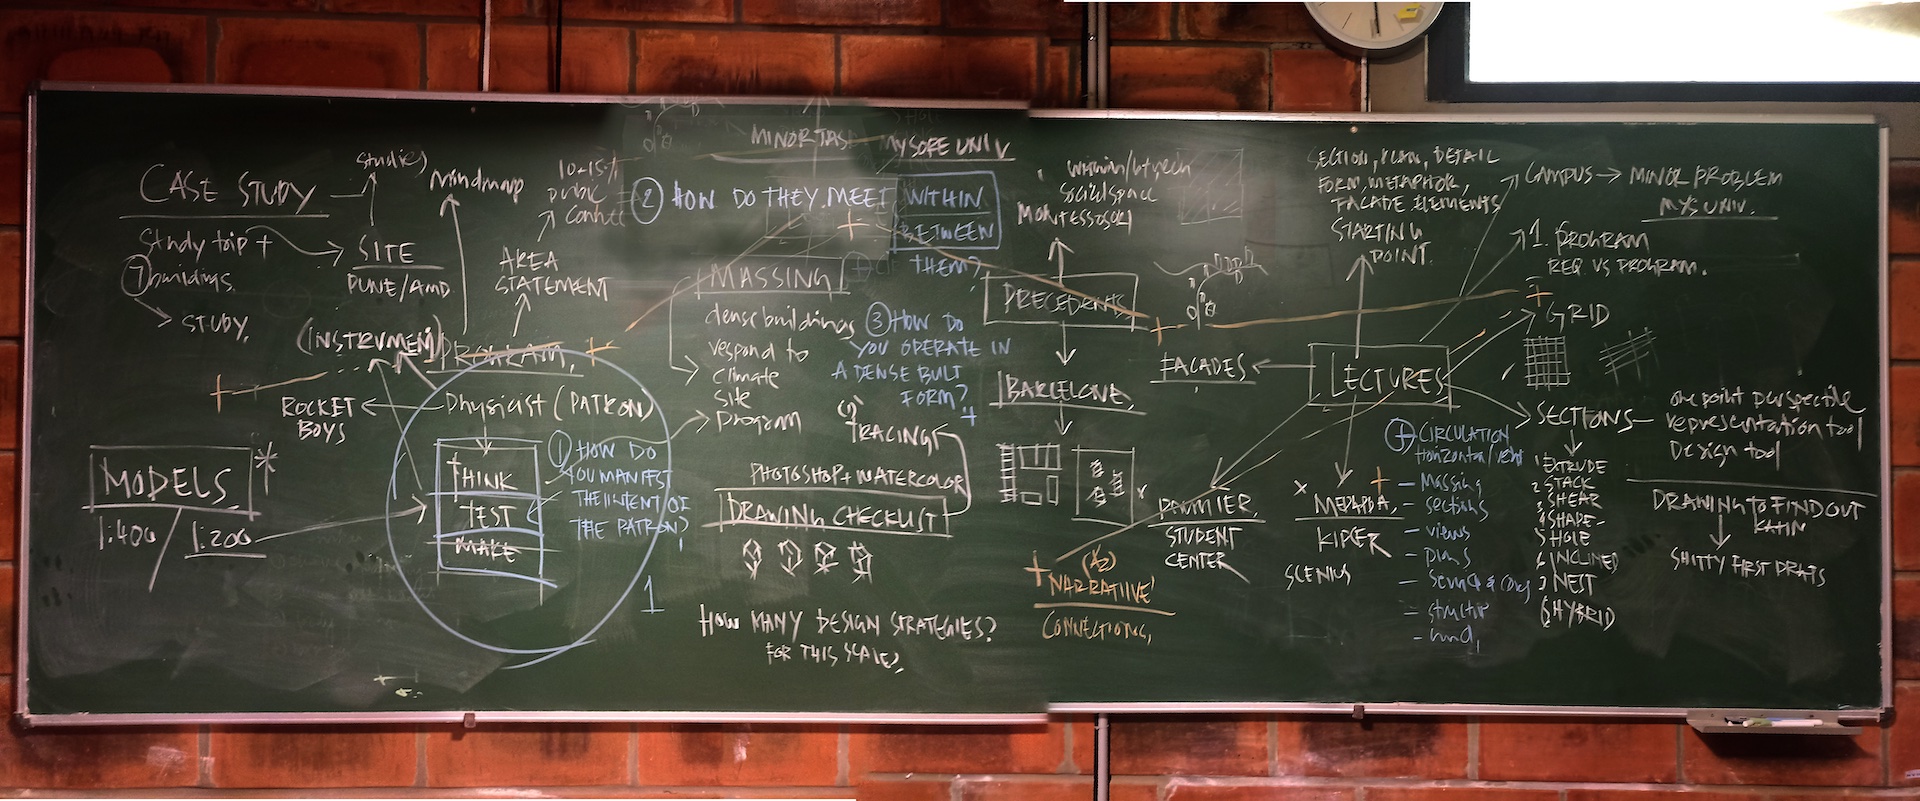 CASE STUDY
studies
Mindmap
10-15%
public
Study trip +
7 buildings
STUDY.
SITE
PUNE/AMD
AREA
STATEMENT
(INSTRUMENT)
PROGRAM,
ROCKET
BOYS
Physicist (PATRON)
MODELS *
1:400 / 1:200
THINK
TEST
MAKE
1 HOW DO
YOU MANIFEST
THE INTENT OF
THE PATRON?
1
MINOR TAS
MYSORE UNIV
2 HOW DO THEY MEET WITHIN
BETWEEN
THEM?
MASSING
dense buildings
respond to
climate
site
program
3 HOW DO
YOU OPERATE IN
A DENSE BUILT
FORM?
4
TRACINGS
PHOTOSHOP + WATERCOLOR
DRAWING CHECKLIST
HOW MANY DESIGN STRATEGIES?
FOR THIS SCALE?
social space
PRECEDENTS
BARCELONE,
FACADES
(A2)
NARRATIIVE
CONNECTIONS,
SECTION, PLAN, DETAIL
FORM, METAPHOR,
FACADE ELEMENTS
STARTING
POINT.
LECTURES
STUDENT
CENTER
SCENIUS
CAMPUS → MINOR PROBLEM
MYS UNIV.
1. PROGRAM
REQ. VS PROGRAM.
GRID
SECTIONS
one point perspective
representation tool
Design tool
CIRCULATION
horizontal/vert
- Massing
- sections
- views
- plans
1 EXTRUDE
2 STACK
3 SHEAR
4 SHAPE-
5 HOLE
6 INCLINED
7 NEST
8 HYBRID
DRAWING TO FIND OUT
KAHN
SHITTY FIRST DRAFTS